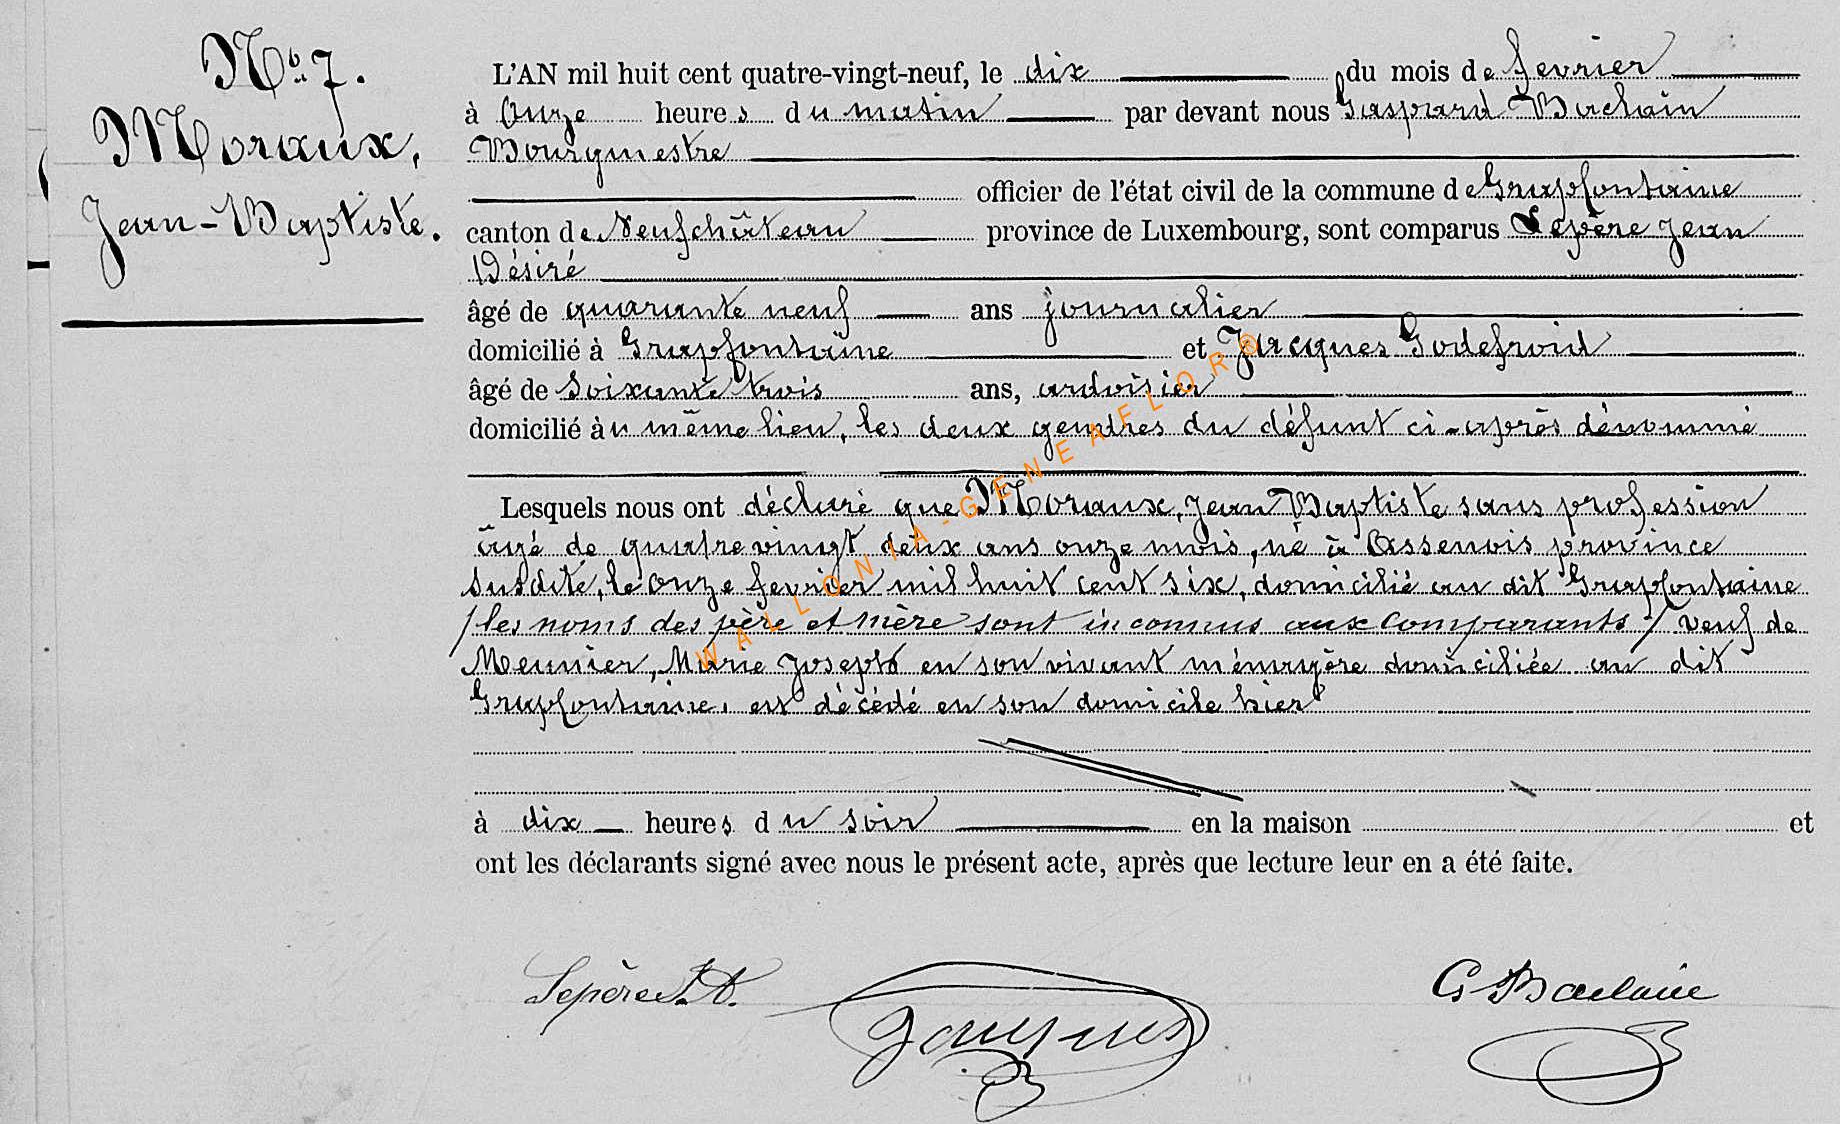 No 7.
Moraux,
Jean-Baptiste.
L'AN mil huit cent quatre-vingt-neuf, le dix du mois de fevrier
à Onze heures du matin par devant nous Gaspard Bachain
Bourgmestre
officier de l'état civil de la commune de Grapfontaine
canton de Neufchâteau province de Luxembourg, sont comparus Lepère Jean
Désiré
âgé de quarante neuf ans journalier
domicilié à Grapfontaine et Jacques Godefroid
âgé de Soixante trois ans, ardoisier
domicilié àu même lieu, les deux gendres du défunt ci-après dénommé
Lesquels nous ont déclaré que Moraux, Jean Baptiste sans profession
âgé de quatre vingt deux ans onze mois, né à Assenois province
susdite, le onze fevrier mil huit cent six, domicilié au dit Grapfontaine
/ les noms des père et mère sont inconnus aux Comparants / veuf de
Meunier, Marie Joseph en son vivant ménagère domiciliée au dit
Grapfontaine, est décédé en son domicile hier
à dix heures du soir en la maison et
ont les déclarants signé avec nous le présent acte, après que lecture leur en a été faite.
Lepère J.D.
Jacques
G Bachain
WALLONIA-GENEAFLOR®